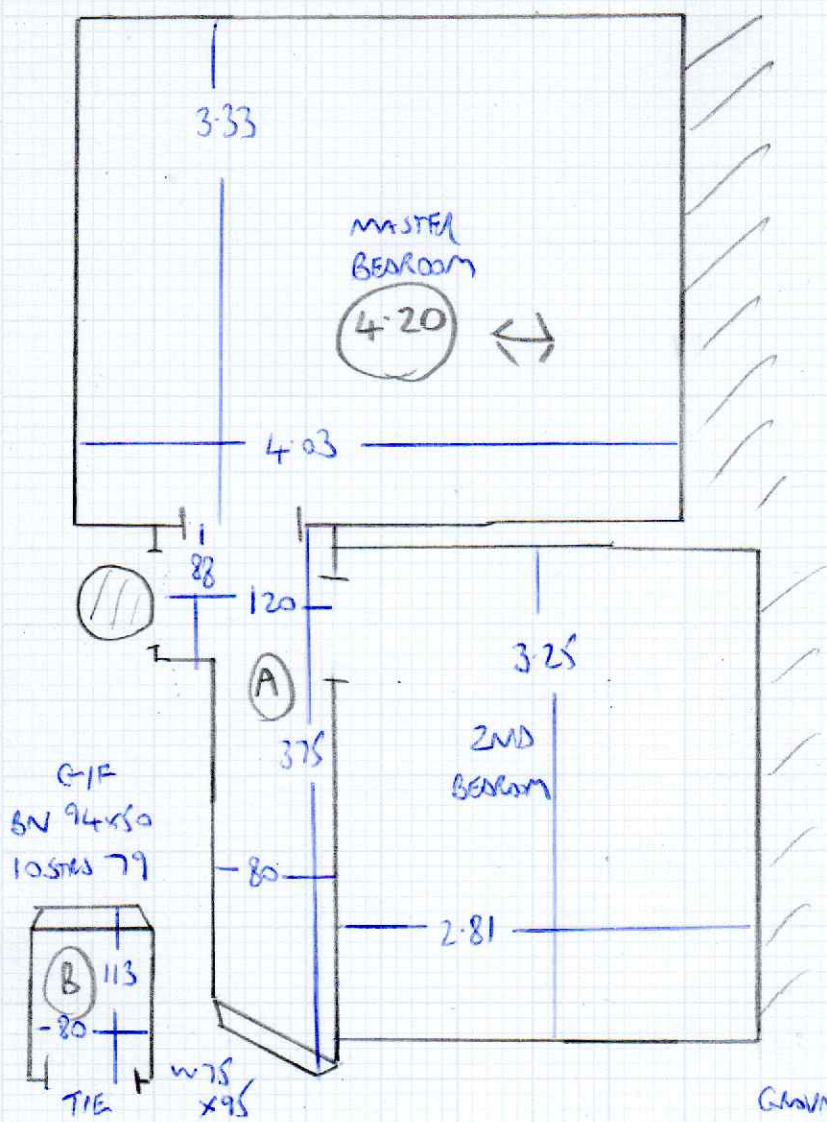 3.33
MASTER
BEDROOM
4.20
4.03
88
120
A
3.25
375
2ND
BEDROOM
G/F
BN 94x50
10 STRS 79
80
2.81
B
113
80
W75
x95
TIE
GROUN